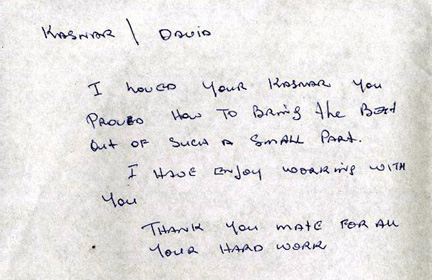 KASNAR | DAVID
I LOVED YOUR KASNAR YOU
PROVED HOW TO BRING the BEST
OUT OF SUCH A SMALL PART.
I HAVE ENJOY WORKING WITH
YOU
THANK YOU MATE FOR ALL
YOUR HARD WORK